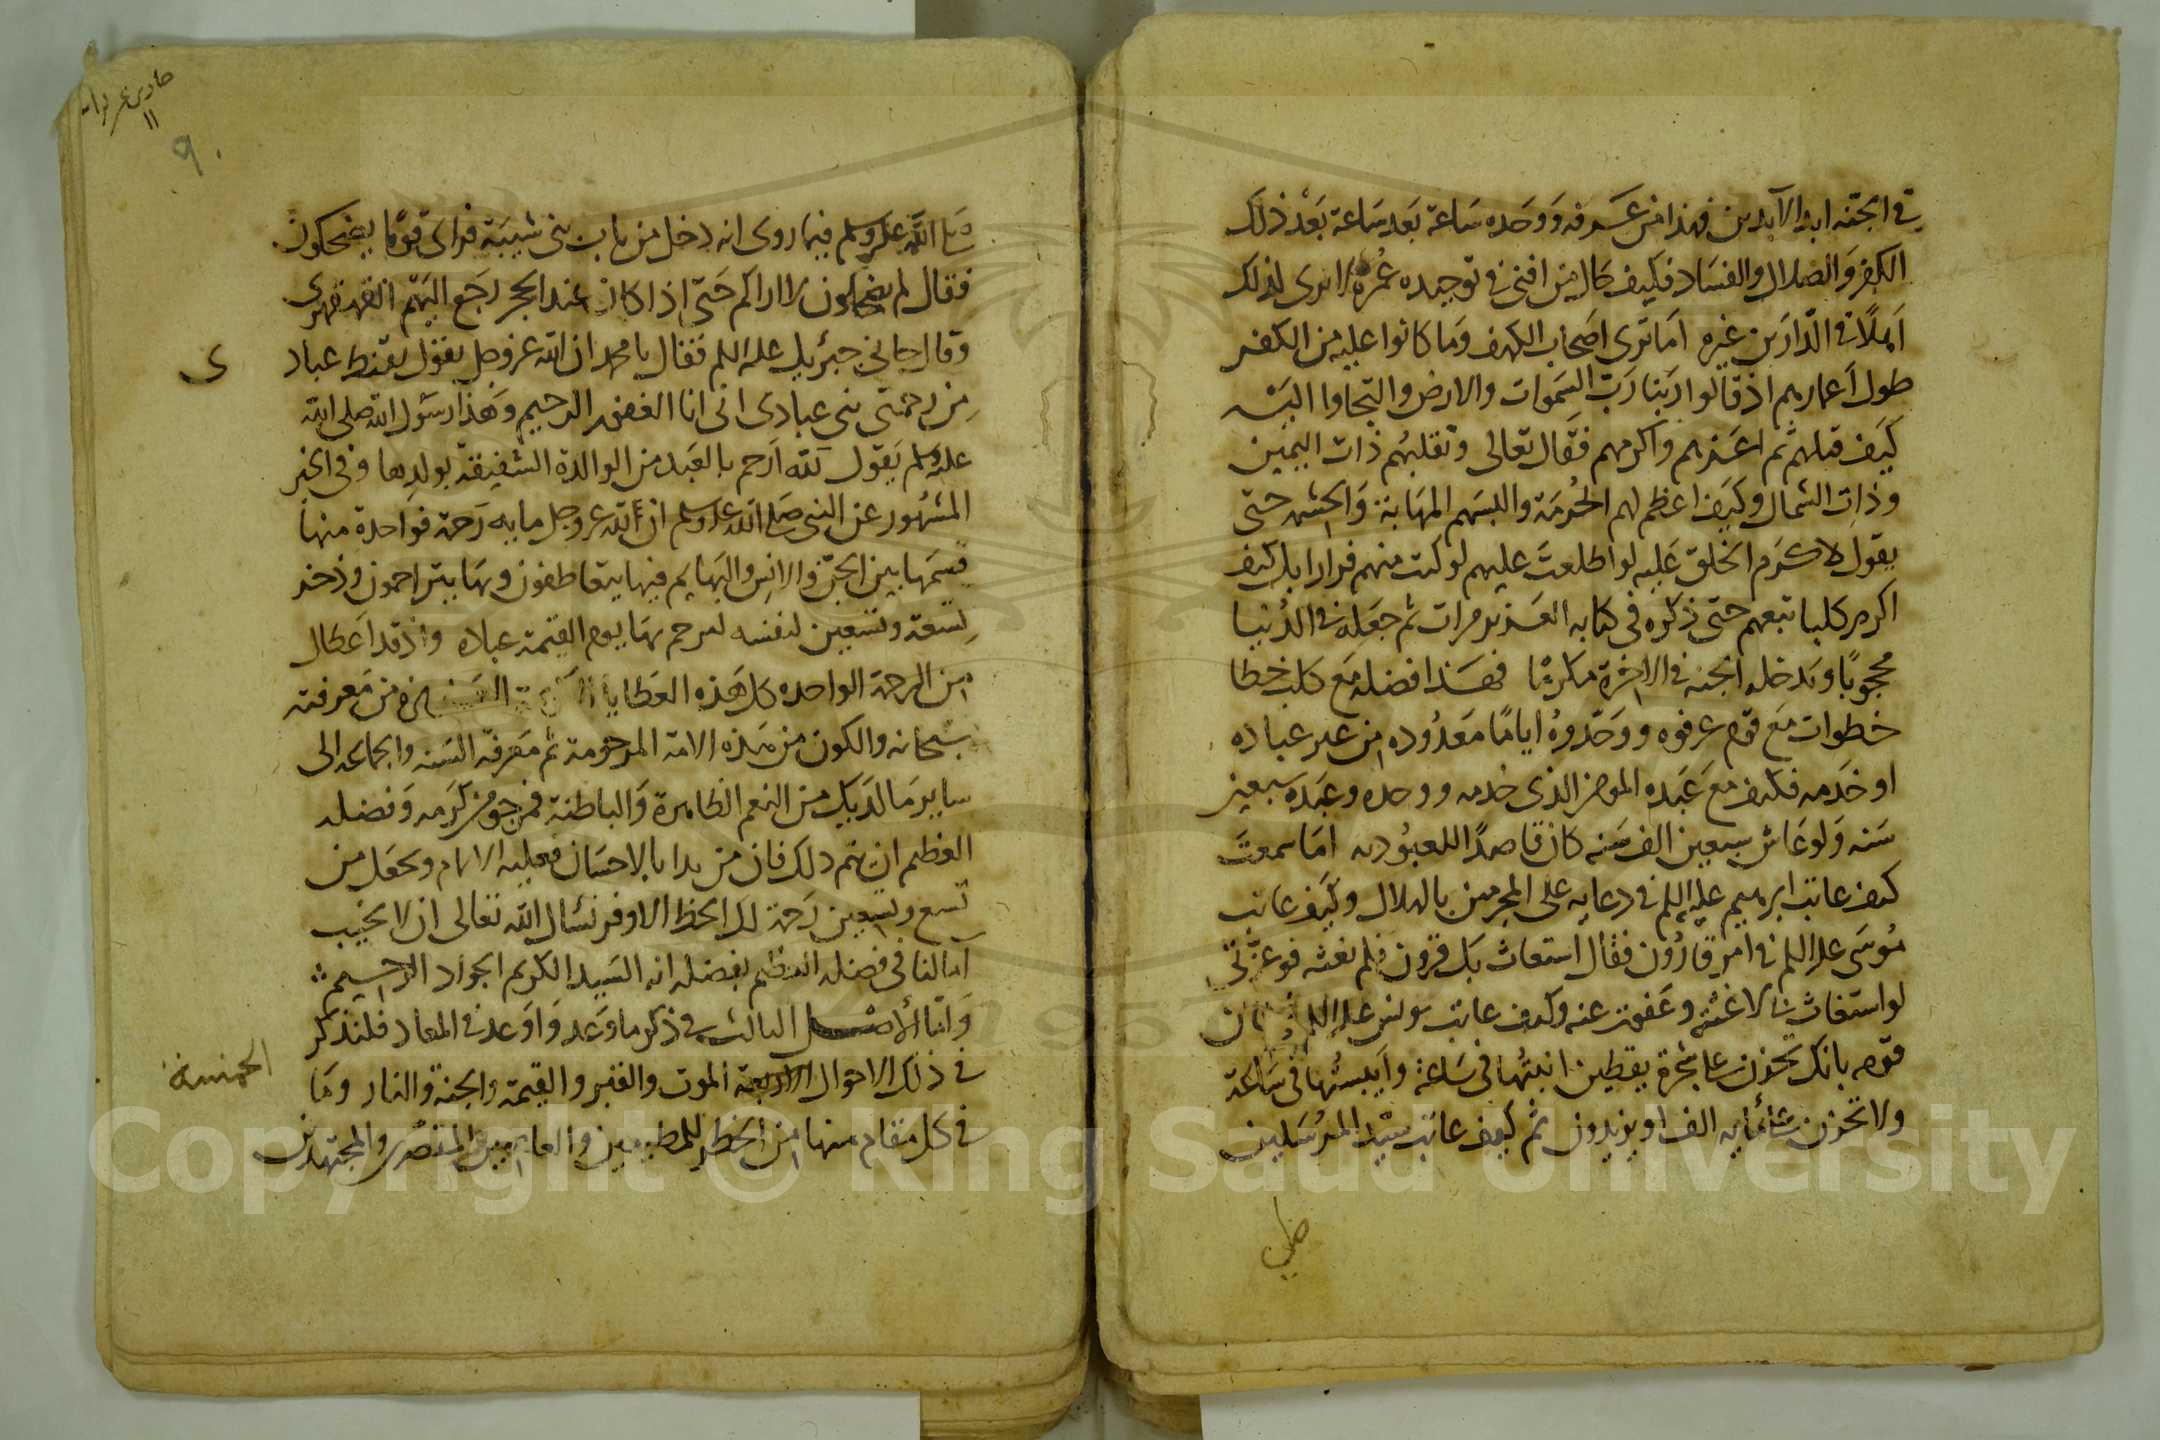 في الجنه ابد الآبدين فهذا من عرفه ووحده ساعة بعد ساعة بعد ذلك
الكفر والضلال والفساد فكيف حال من افنى في توحيده عمره لا يرى لذلك
اهلا في الدارين غيره اما ترى اصحاب الكهف وما كانوا عليه من الكفر
طول اعمارهم اذ قالوا ربنا رب السموات والارض والتجاوا اليه
كيف قبلهم ثم اعزهم واكرمهم فقال تعالى ونقلبهم ذات اليمين
وذات الشمال وكيف اعظم لهم الحرمة والبسهم المهابة والخشيه حتى
يقول لاكرم الخلق عليه لو اطلعت عليهم لوليت منهم فرارا بل كيف
اكرم كلبا تبعهم حتى ذكره في كتابه العزيز مرات ثم جعله في الدنيا
محجوبا ويدخله الجنه في الاخرة مكرما فهذا فضله مع كلب خطا
خطوات مع قوم عرفوه ووحدوه اياما معدوده من غير عباده
او خدمه فكيف مع عبده المومن الذي خدمه ووحده وعبده سبعين
سنه ولو عاش سبعين الف سنه كان قاصدا للعبوديه اما سمعت
كيف عاتب ابرهيم عليه السلم في دعايه على المجرمين بالهلال وكيف عاتب
موسى عليه السلم في امر قارون فقال استغاث بك قارون فلم تغثه فوعزتي
لو استغاث بي لاغثته وعفوت عنه وكيف عاتب يونس عليه السلم في شان
قومه بانك تحزن على شجرة يقطين انبتها في ساعة وايبستها في ساعة
ولا تحزن على مايه الف او يزيدون ثم كيف عاتب سيد المرسلين
صلى
حادي عشر
١١
٩
صلى الله عليه وسلم فيما روى انه دخل من باب بني شيبة فراى قوما يضحكون
فقال لم تضحكون لا اراكم حتى اذا كان عند الحجر رجع اليهم القهقرى
وقال جاني جبرئيل عليه السلم فقال يا محمد ان الله عز وجل يقول يقنط عباد
ى
من رحمتي نبي عبادي اني انا الغفور الرحيم وهذا رسول الله صلى الله
عليه وسلم يقول لله ارحم بالعبد من الوالدة الشفيقة بولدها وفي الخبر
المشهور عن النبي صلى الله عليه وسلم ان لله عز وجل مايه رحمة فواحدة منها
قسمها بين الجن والانس والبهايم فبها يتعاطفون وبها يتراحمون وذخر
تسعة وتسعين لنفسه ليرحم بها يوم القيمة عباده واذ قد اعطاك
من الرحمة الواحده كل هذه العطايا من معرفته
سبحانه والكون من هذه الامة المرحومة ثم معرفة السنه والجماعه الى
ساير ما لديك من النعم الظاهرة والباطنة فمرجو من كرمه وفضله
العظيم ان يتم ذلك فان من بدا بالاحسان فعليه الاتمام ويجعل من
تسع وتسعين رحمة لك الحظ الاوفر نسال الله تعالى ان لا يخيب
امالنا في فضله العظيم بفضله انه السيد الكريم الجواد الرحيم
واما الاصل الثالث في ذكر ما وعد واوعد في المعاد فلنذكر
في ذلك الاحوال الاربعة الموت والقبر والقيمة والجنة والنار وما
الخمسة
في كل مقام منها من الخطر للمطيعين والعاصين والمقصرين والمجتهدين
Copyright © King Saud University
1957